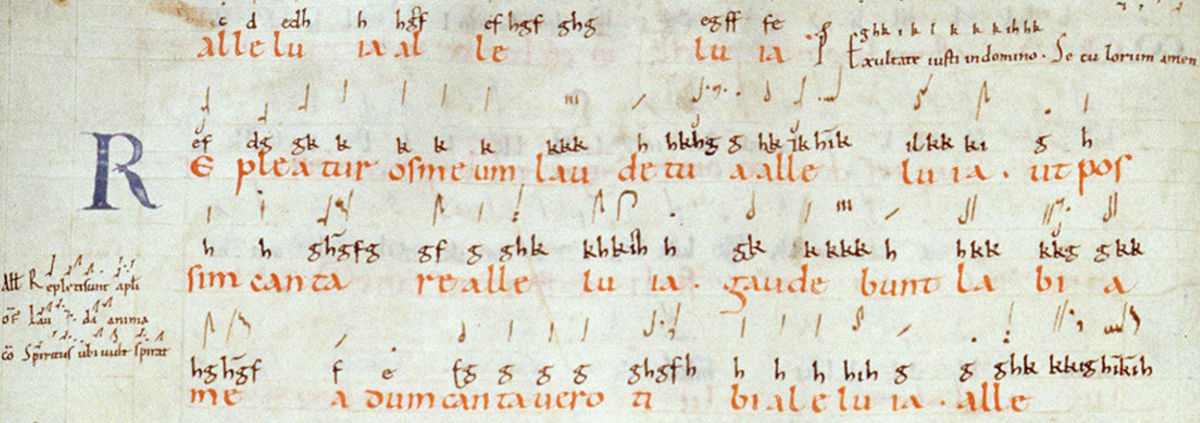 c d edh h hgf ef hgf ghg egff fe
alle lu ia al le lu ia P Exultate iusti in domino. Se cu lorum amen
ef dg gk k k k k kkk h hkhg g hk ik hik ilkk ki g h
RE pleatur os meum lau de tu a alle lu ia. ut pos
h h ghgfg gf g ghk khkih h gk k kkk h hkk kkg gkk
sim canta re alle lu ia. gaude bunt la bi a
All Repleti sunt apli
of Lau da anima
co Spiritus ubi uult spirat
hg hgf f e fg g g g ghgfh h h h hih g g ghk kkighikih
me a dum cantauero ti bi ale lu ia. alle